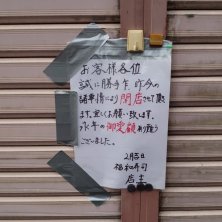 お客様各位
誠に勝手乍、昨今の
諸事情により閉店させて頂き
ます。宜しくお願い致します。
永年の御愛顧有り難う
ございました。
2月吉日
福和寿司
店主